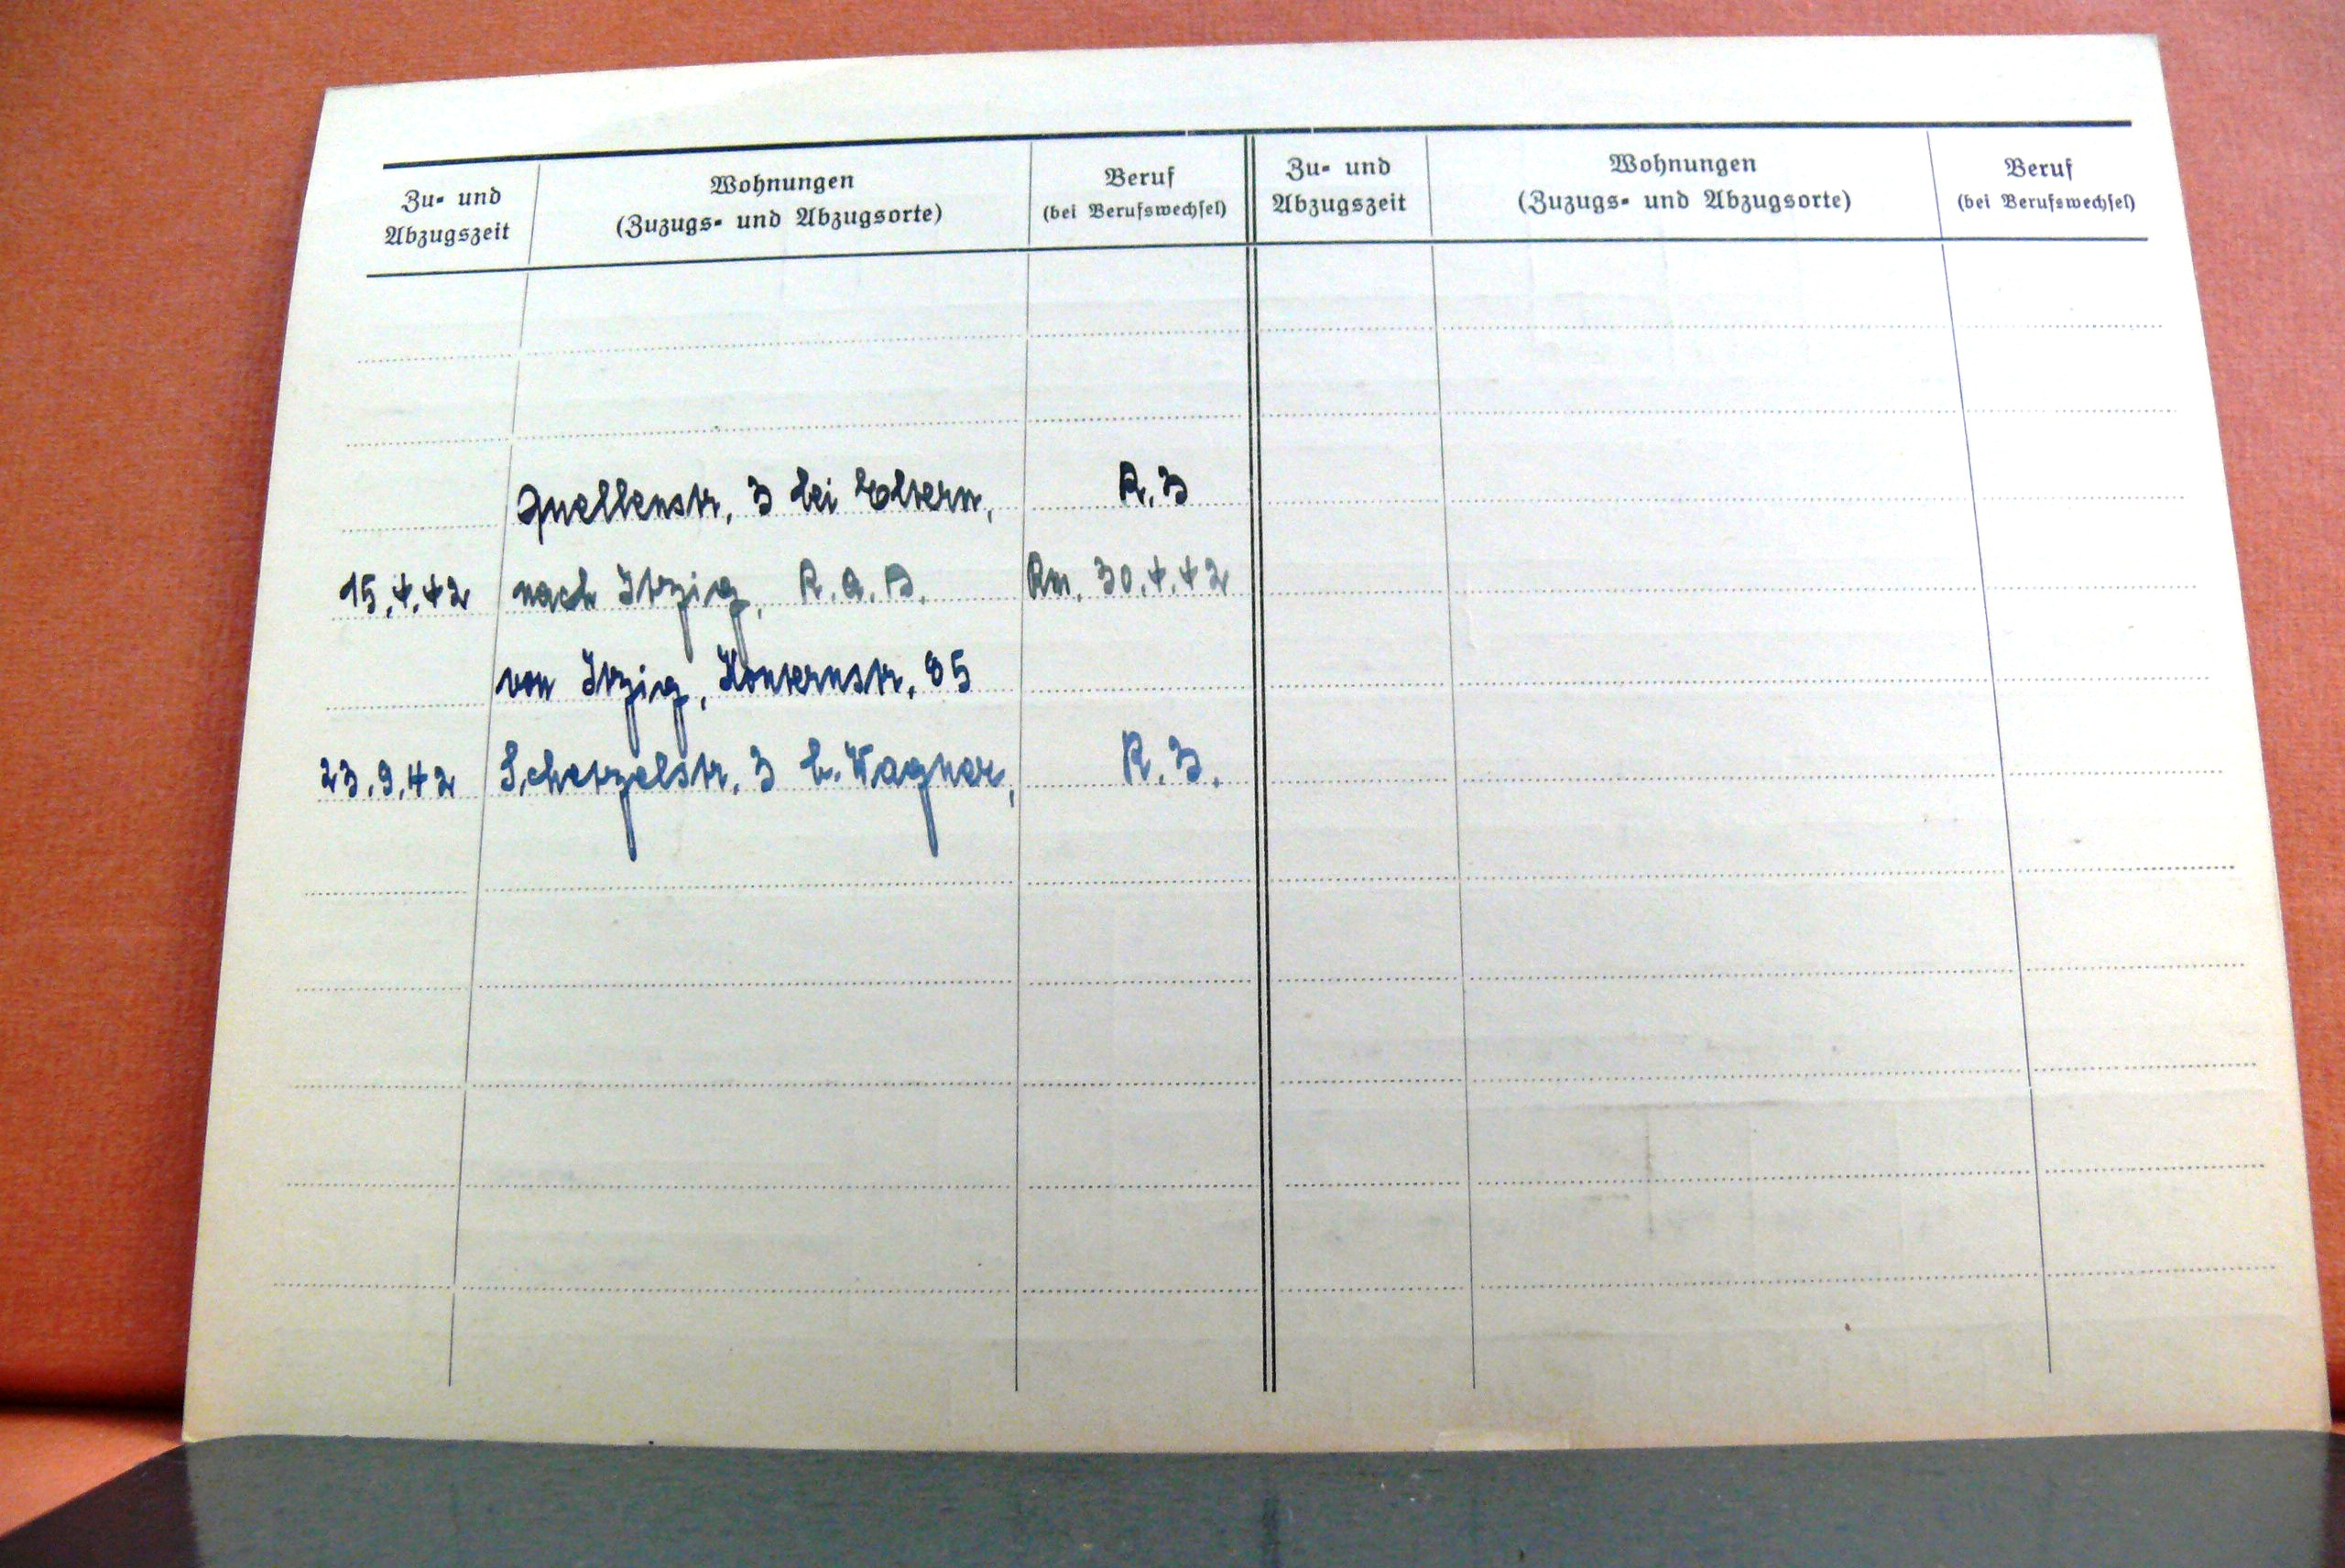 Zu- und Abzugszeit Wohnungen (Zuzugs- und Abzugsorte) Beruf (bei Berufswechsel) Zu- und Abzugszeit Wohnungen (Zuzugs- und Abzugsorte) Beruf (bei Berufswechsel)
Quellenstr. 3 bei Eltern, R.3
15.4.42 nach Itzig, R.A.B. Rm. 30.4.42
von Itzig, Konternstr. 85
23.9.42 Schetzelstr. 3 b. Wagner, R.3.